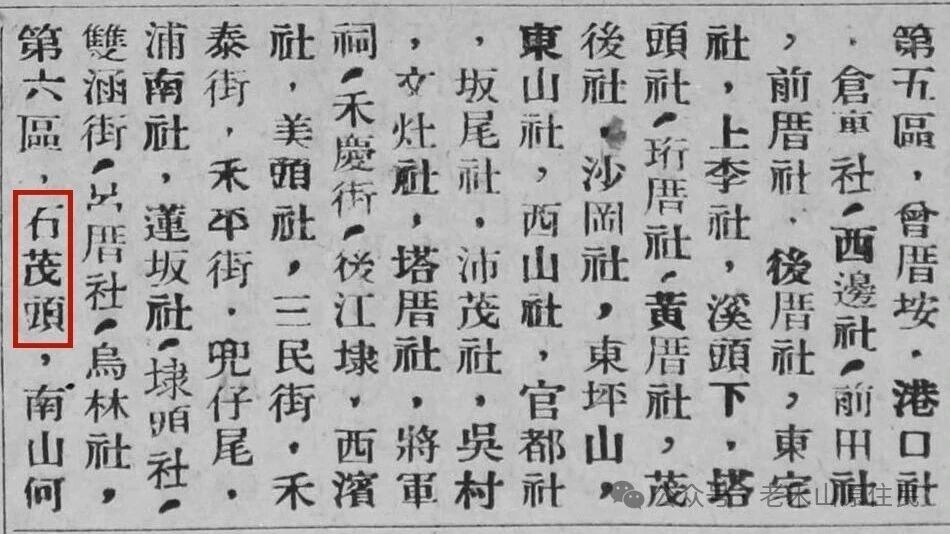 第五區，曾厝垵．港口社
．倉社，西邊社，前田社
，前厝社．後厝社，東宅
社，上李社，溪頭下，塔
頭社，珩厝社，黃厝社，茂
後社，沙岡社，東坪山，
東山社，西山社，官都社
，坂尾社，沛茂社，吳村
，文灶社，塔厝社，將軍
祠，禾慶街，後江埭，西濱
社，美頭社，三民街，禾
泰街，禾平街．兜仔尾．
浦南社，蓮坂社，埭頭社，
雙涵街，呂厝社，烏林社，
第六區，石茂頭，南山何
公众号·老禾山原住民